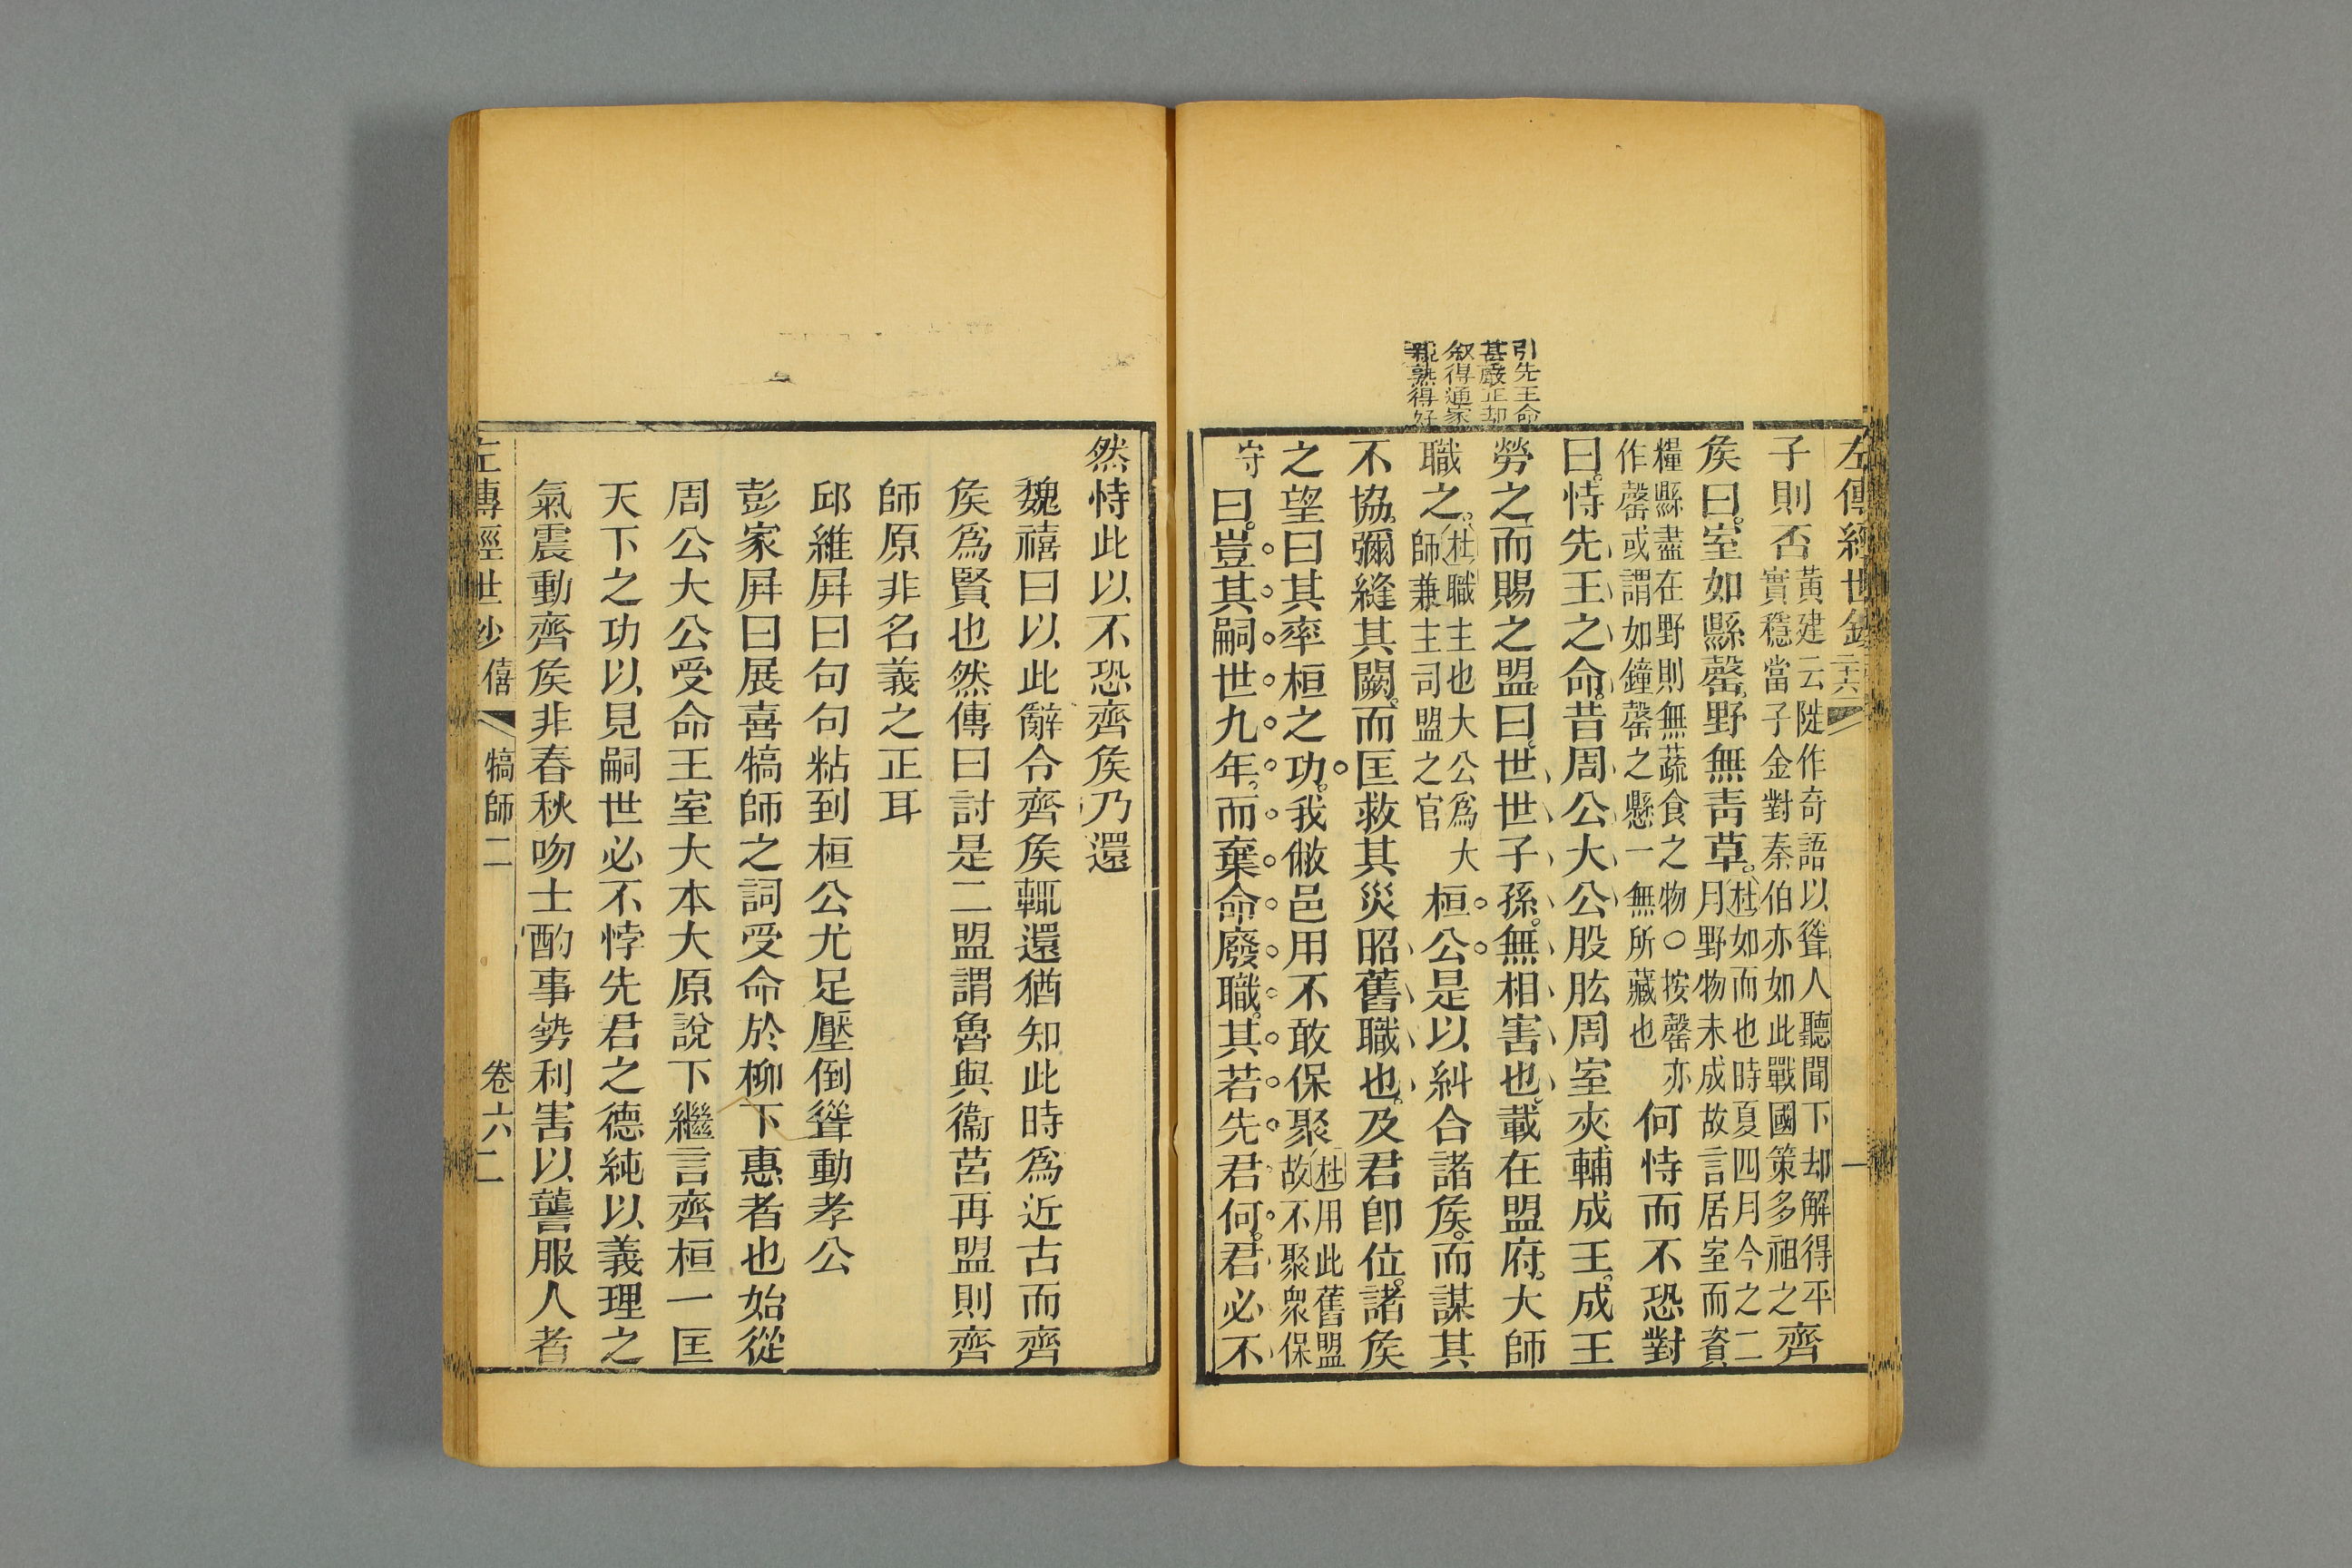 引先王命
甚嚴正却
叙得通家
熟得好
左傳經世鈔
二十六
一
子則否
黃建云陡作奇語以聳人聽聞下却解得平
實穩當子金對秦伯亦如此戰國策多祖之
齊
矦曰室如縣罄野無靑草
杜如而也時夏四月今之二
月野物未成故言居室而資
糧縣盡在野則無蔬食之物○按罄亦
作磬或謂如鐘磬之懸一無所藏也
何恃而不恐對
曰恃先王之命昔周公大公股肱周室夾輔成王成王
勞之而賜之盟曰世世子孫無相害也載在盟府大師
職之
杜職主也大公爲大
師兼主司盟之官
桓公是以糾合諸矦而謀其
不協彌縫其闕而匡救其災昭舊職也及君卽位諸矦
之望曰其率桓之功我敝邑用不敢保聚
杜用此舊盟
故不聚衆保
守
曰豈其嗣世九年而棄命廢職其若先君何君必不
然恃此以不恐齊矦乃還
魏禧曰以此辭令齊矦輒還猶知此時爲近古而齊
矦爲賢也然傳曰討是二盟謂魯與衞莒再盟則齊
師原非名義之正耳
邱維屛曰句句粘到桓公尤足壓倒聳動孝公
彭家屛曰展喜犒師之詞受命於柳下惠者也始從
周公大公受命王室大本大原說下繼言齊桓一匡
天下之功以見嗣世必不悖先君之德純以義理之
氣震動齊矦非春秋吻士酌事勢利害以讋服人者
左傳經世鈔
僖
犒師二
卷六
二